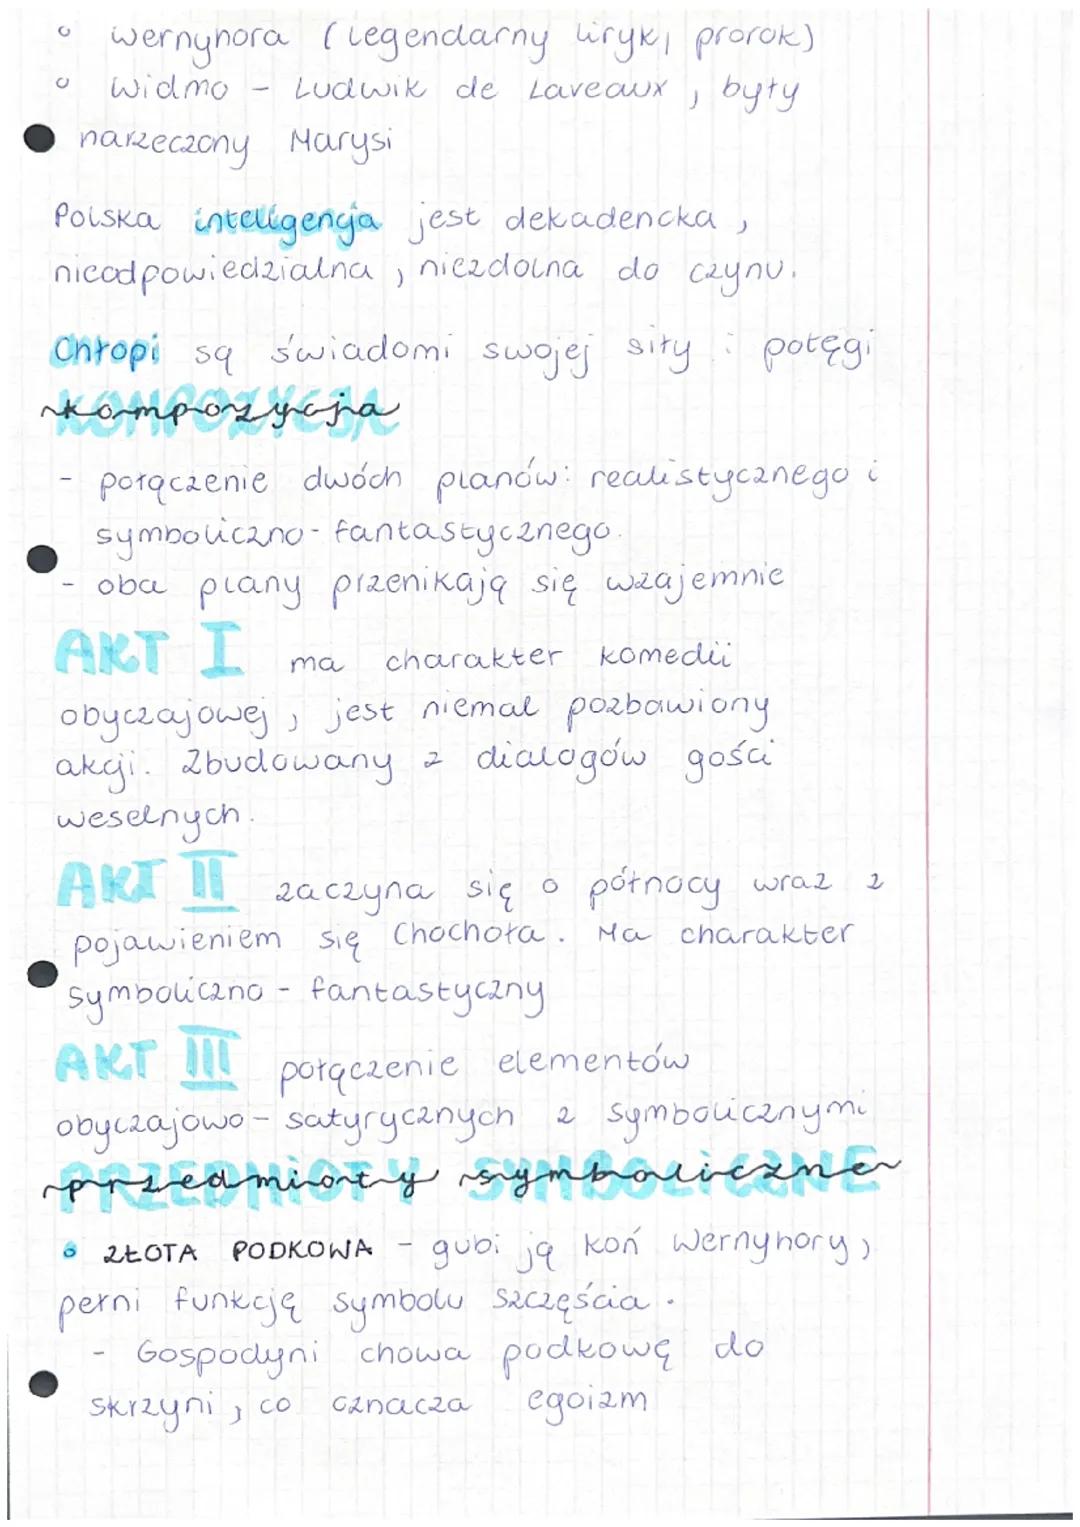 wernyhora (legendarny liryk, prorok)
Widmo - Ludwik de Laveaux, były
narzeczony Marysi
Polska inteligencja jest dekadencka,
nieodpowiedzialna, niezdolna do czynu.
Chłopi są świadomi swojej siły i potęgi
kompozycja
- połączenie dwóch planów: realistycznego i
symboliczno-fantastycznego.
- oba plany przenikają się wzajemnie
AKT I ma charakter komedii
obyczajowej, jest niemal pozbawiony
akcji. Zbudowany z dialogów gości
weselnych.
AKT II zaczyna się o północy wraz z
pojawieniem się Chochoła. Ma charakter
symboliczno-fantastyczny
AKT III połączenie elementów
obyczajowo-satyrycznych z symbolicznymi
przedmioty symboliczne
ZŁOTA PODKOWA - gubi ją koń Wernyhory,
pełni funkcję symbolu szczęścia.
- Gospodyni chowa podkowę do
skrzyni, co oznacza egoizm